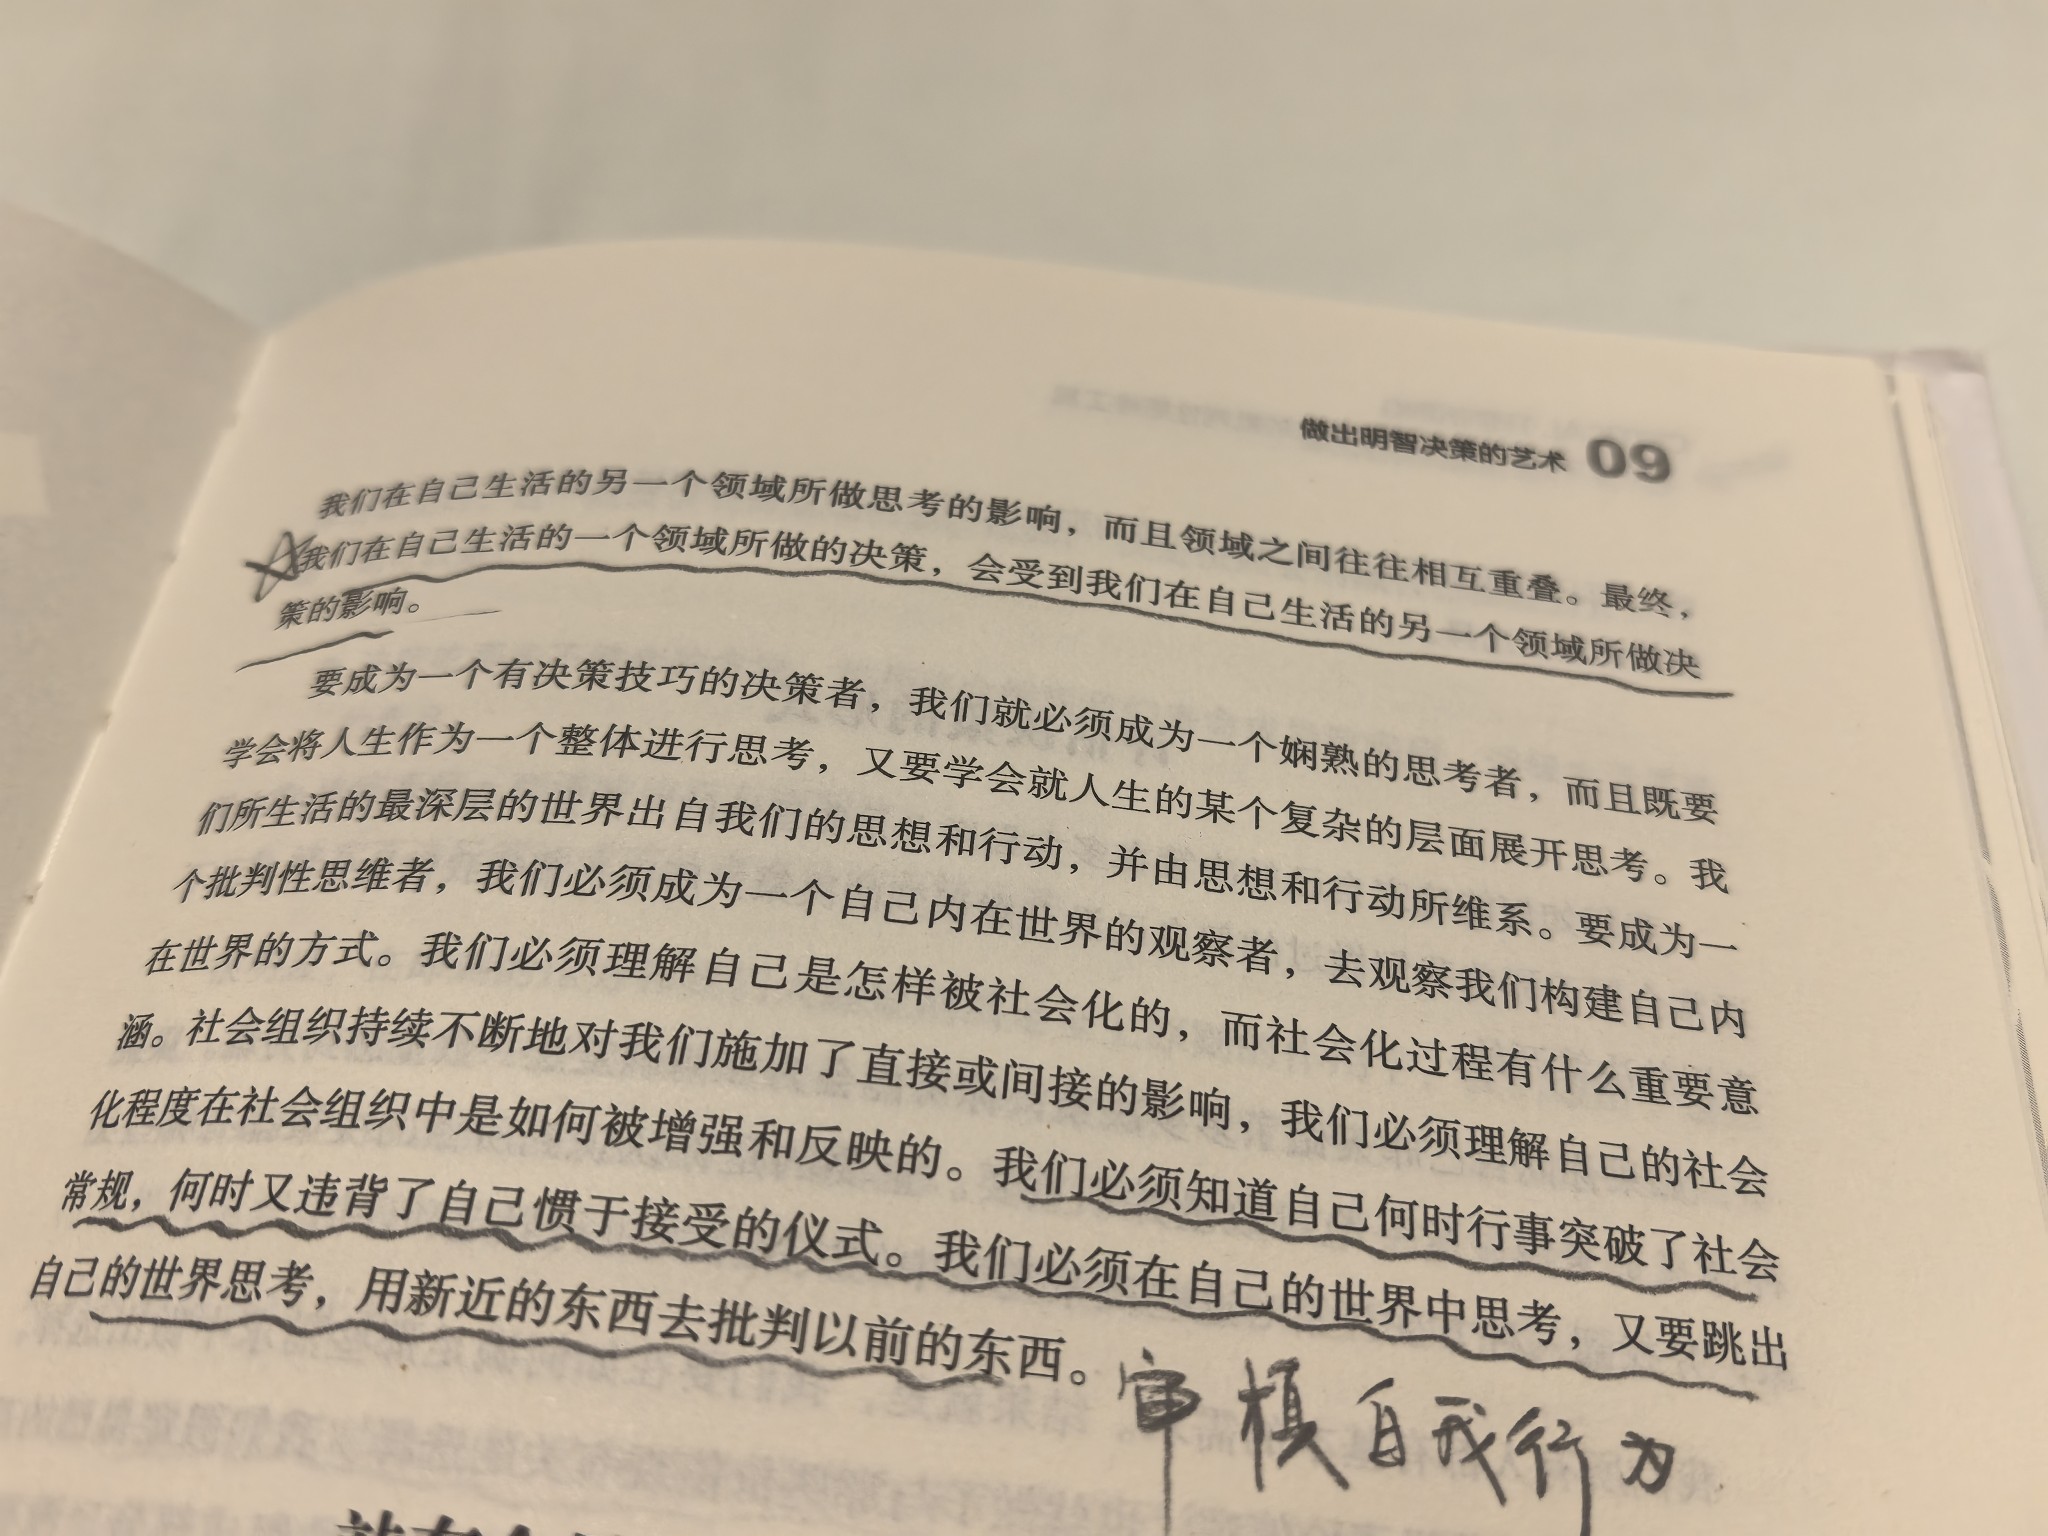 做出明智决策的艺术 09
我们在自己生活的另一个领域所做思考的影响，而且领域之间往往相互重叠。最终，
我们在自己生活的一个领域所做的决策，会受到我们在自己生活的另一个领域所做决
策的影响。
要成为一个有决策技巧的决策者，我们就必须成为一个娴熟的思考者，而且既要
学会将人生作为一个整体进行思考，又要学会就人生的某个复杂的层面展开思考。我
们所生活的最深层的世界出自我们的思想和行动，并由思想和行动所维系。要成为一
个批判性思维者，我们必须成为一个自己内在世界的观察者，去观察我们构建自己内
在世界的方式。我们必须理解自己是怎样被社会化的，而社会化过程有什么重要意
涵。社会组织持续不断地对我们施加了直接或间接的影响，我们必须理解自己的社会
化程度在社会组织中是如何被增强和反映的。我们必须知道自己何时行事突破了社会
常规，何时又违背了自己惯于接受的仪式。我们必须在自己的世界中思考，又要跳出
自己的世界思考，用新近的东西去批判以前的东西。
自我行为